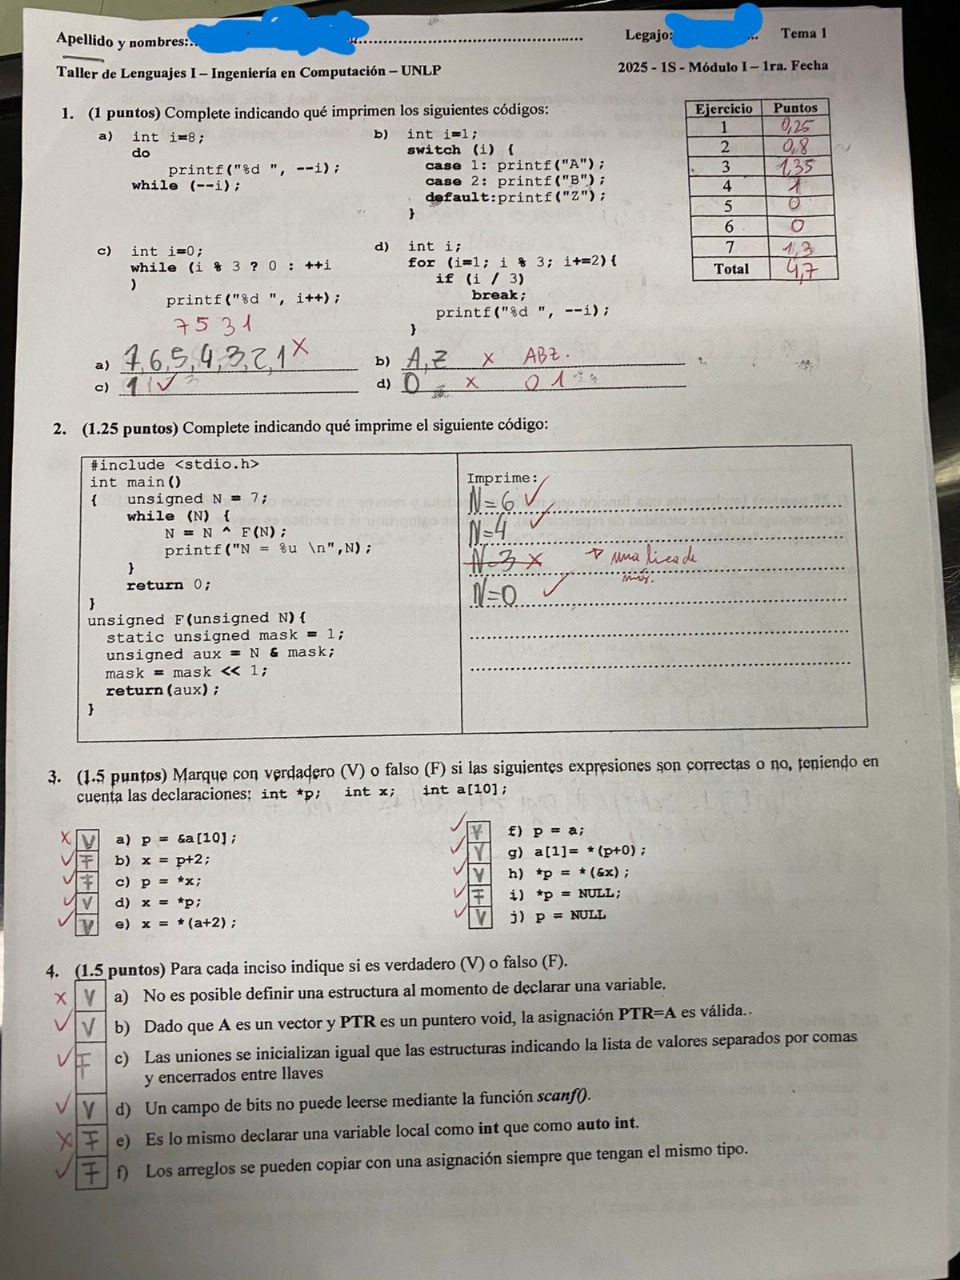 Apellido y nombres:
Legajo:
Tema 1
Taller de Lenguajes I – Ingeniería en Computación – UNLP
2025 - 1S - Módulo I – 1ra. Fecha
1. (1 puntos) Complete indicando qué imprimen los siguientes códigos:
a) int i=8;
do
printf("%d ", --i);
while (--i);
b) int i=1;
switch (i) {
case 1: printf("A");
case 2: printf("B");
default:printf("Z");
}
Ejercicio Puntos
1 0,25
2 0,8
3 1,35
4 1
5 0
6 0
7 1,3
Total 4,7
c) int i=0;
while (i % 3 ? 0 : ++i
)
printf("%d ", i++);
d) int i;
for (i=1; i % 3; i+=2){
if (i / 3)
break;
printf("%d ", --i);
}
7 5 3 1
a) 7,6,5,4,3,2,1 X
b) A,Z X ABZ.
c) 1 ✓
d) 0 X 0 1
2. (1.25 puntos) Complete indicando qué imprime el siguiente código:
#include <stdio.h>
int main()
{ unsigned N = 7;
while (N) {
N = N ^ F(N);
printf("N = %u \n",N);
}
return 0;
}
unsigned F(unsigned N){
static unsigned mask = 1;
unsigned aux = N & mask;
mask = mask << 1;
return(aux);
}
Imprime:
N=6 ✓
N=4 ✓
N=3 X → una linea de
más.
N=0 ✓
3. (1.5 puntos) Marque con verdadero (V) o falso (F) si las siguientes expresiones son correctas o no, teniendo en
cuenta las declaraciones: int *p; int x; int a[10];
X V a) p = &a[10];
✓ F b) x = p+2;
✓ F c) p = *x;
✓ V d) x = *p;
✓ V e) x = *(a+2);
✓ V f) p = a;
✓ V g) a[1]= *(p+0);
✓ V h) *p = *(&x);
✓ F i) *p = NULL;
✓ V j) p = NULL
4. (1.5 puntos) Para cada inciso indique si es verdadero (V) o falso (F).
X V a) No es posible definir una estructura al momento de declarar una variable.
✓ V b) Dado que A es un vector y PTR es un puntero void, la asignación PTR=A es válida.
✓ F c) Las uniones se inicializan igual que las estructuras indicando la lista de valores separados por comas
y encerrados entre llaves
✓ V d) Un campo de bits no puede leerse mediante la función scanf().
X F e) Es lo mismo declarar una variable local como int que como auto int.
✓ F f) Los arreglos se pueden copiar con una asignación siempre que tengan el mismo tipo.